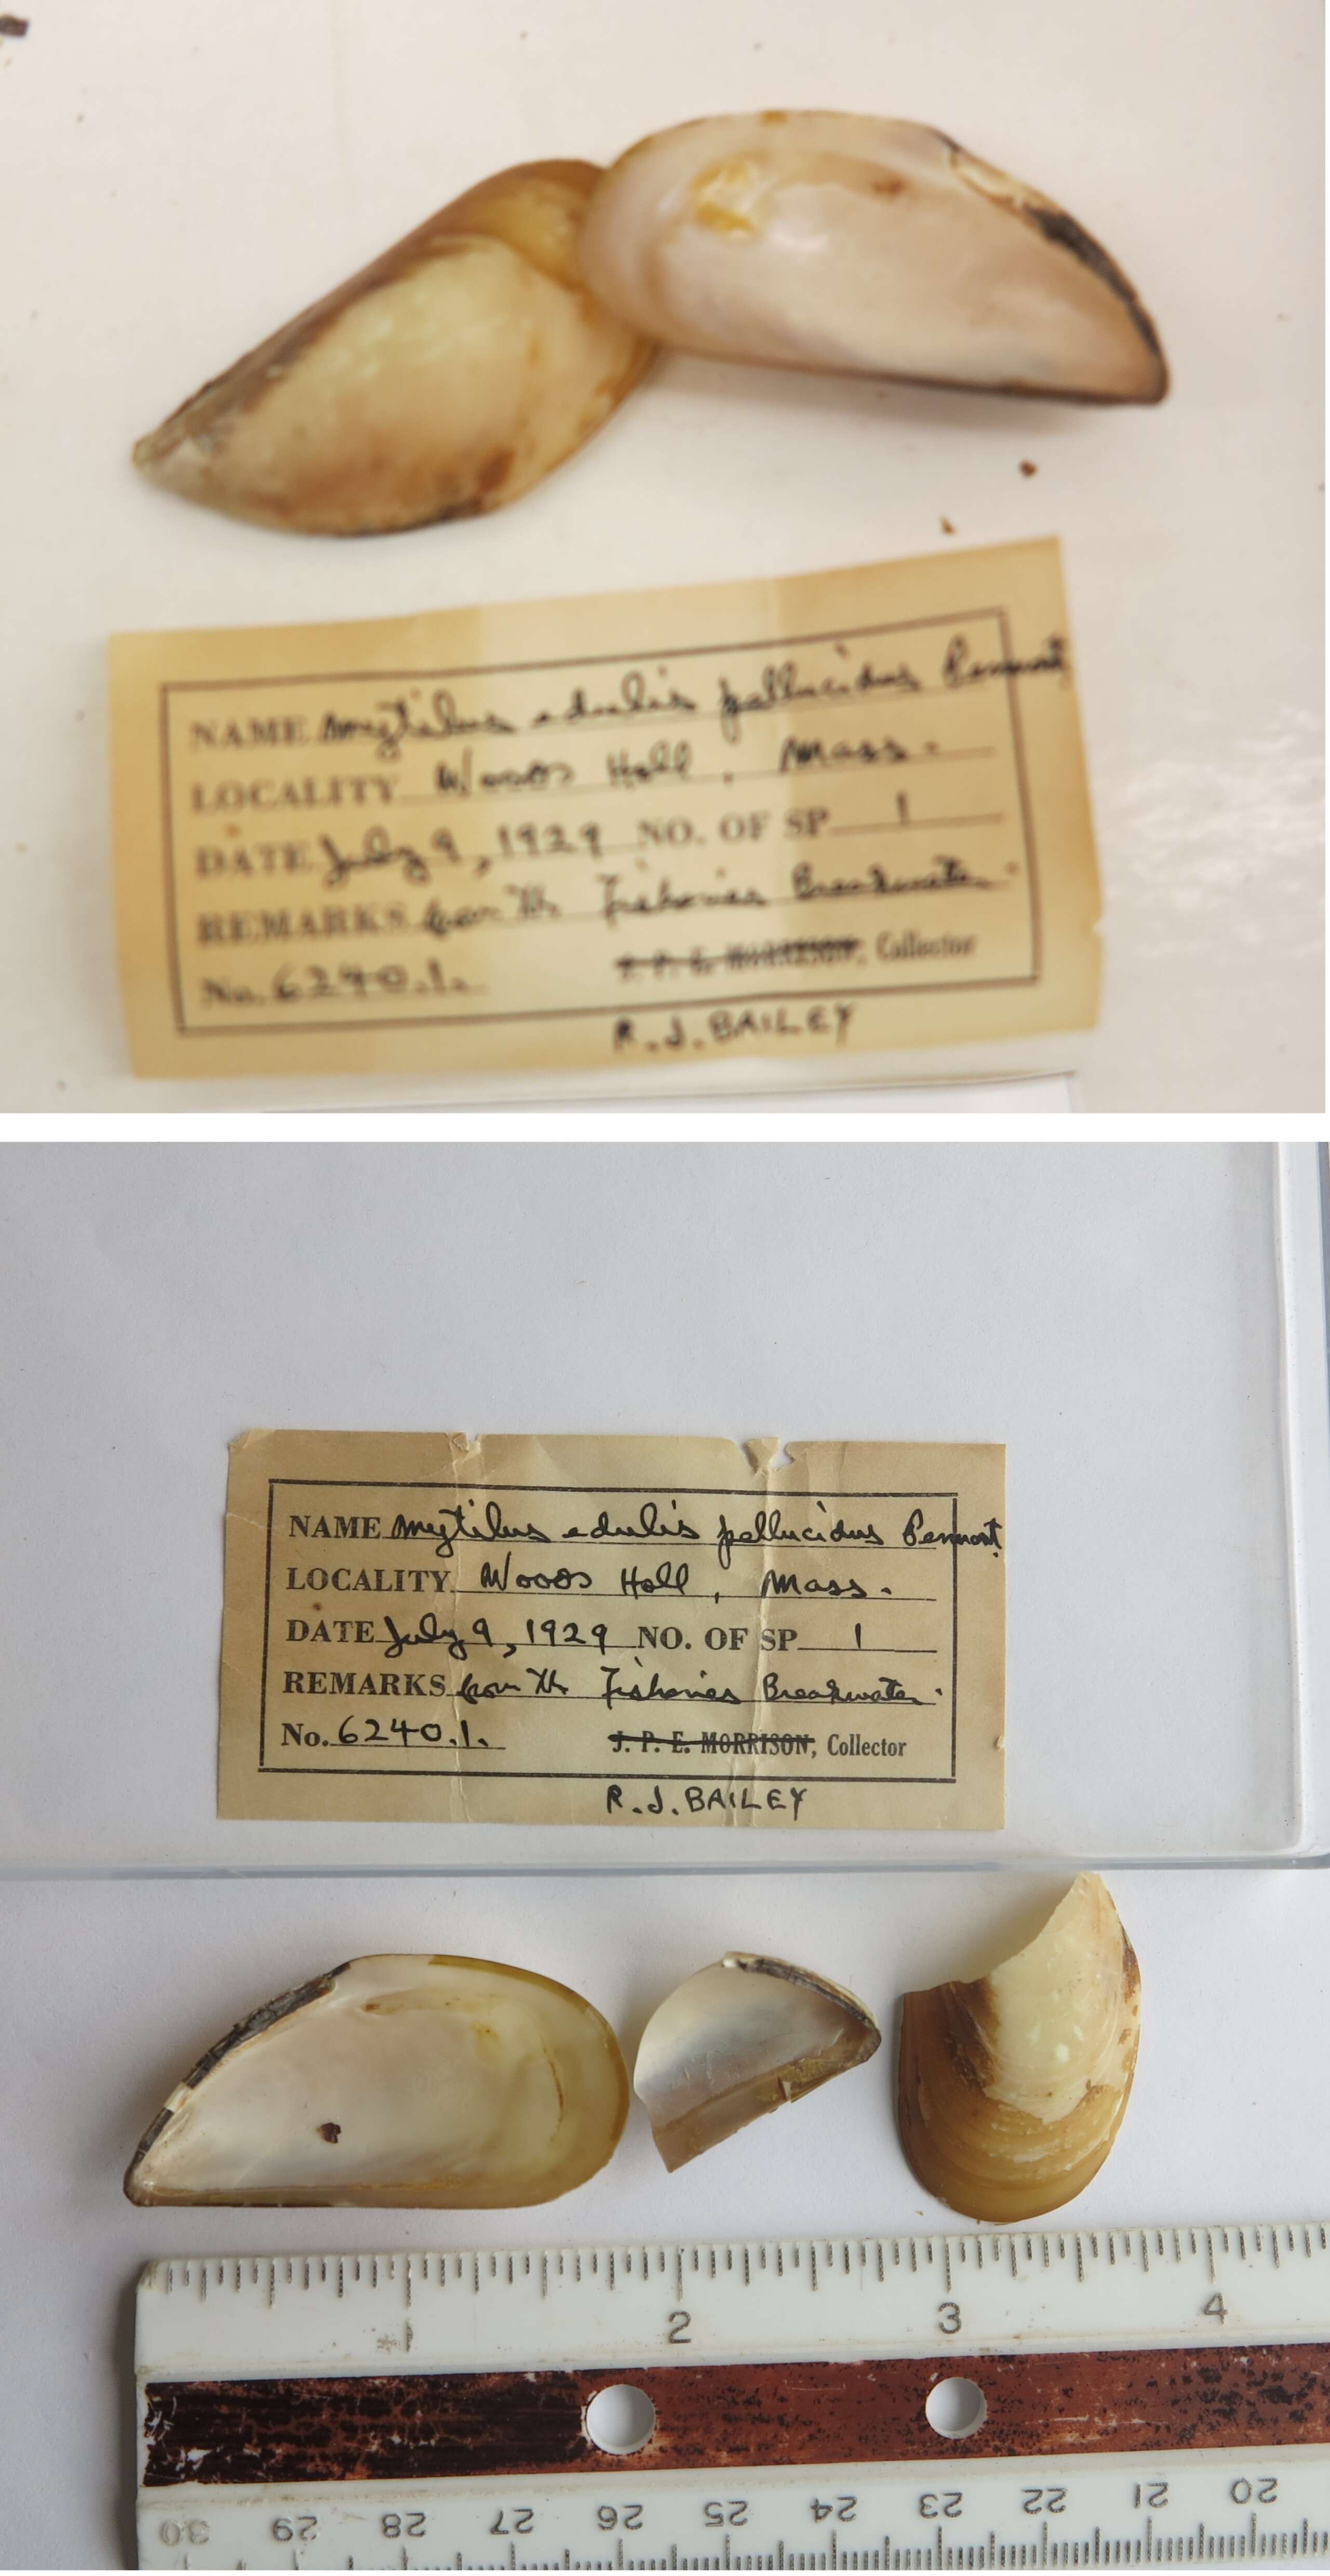 NAME Mytilus edulis pellucidus Pennant
LOCALITY Woods Holl, Mass.
DATE July 9, 1929 NO. OF SP 1
REMARKS from the Fisheries Breakwater.
No. 6240.1. J. P. E. MORRISON, Collector
R.J. BAILEY
NAME Mytilus edulis pellucidus Pennant.
LOCALITY Woods Holl, Mass.
DATE July 9, 1929 NO. OF SP 1
REMARKS from the Fisheries Breakwater.
No. 6240.1. J. P. E. MORRISON, Collector
R.J. BAILEY
1 2 3 4
30 29 28 27 26 25 24 23 22 21 20